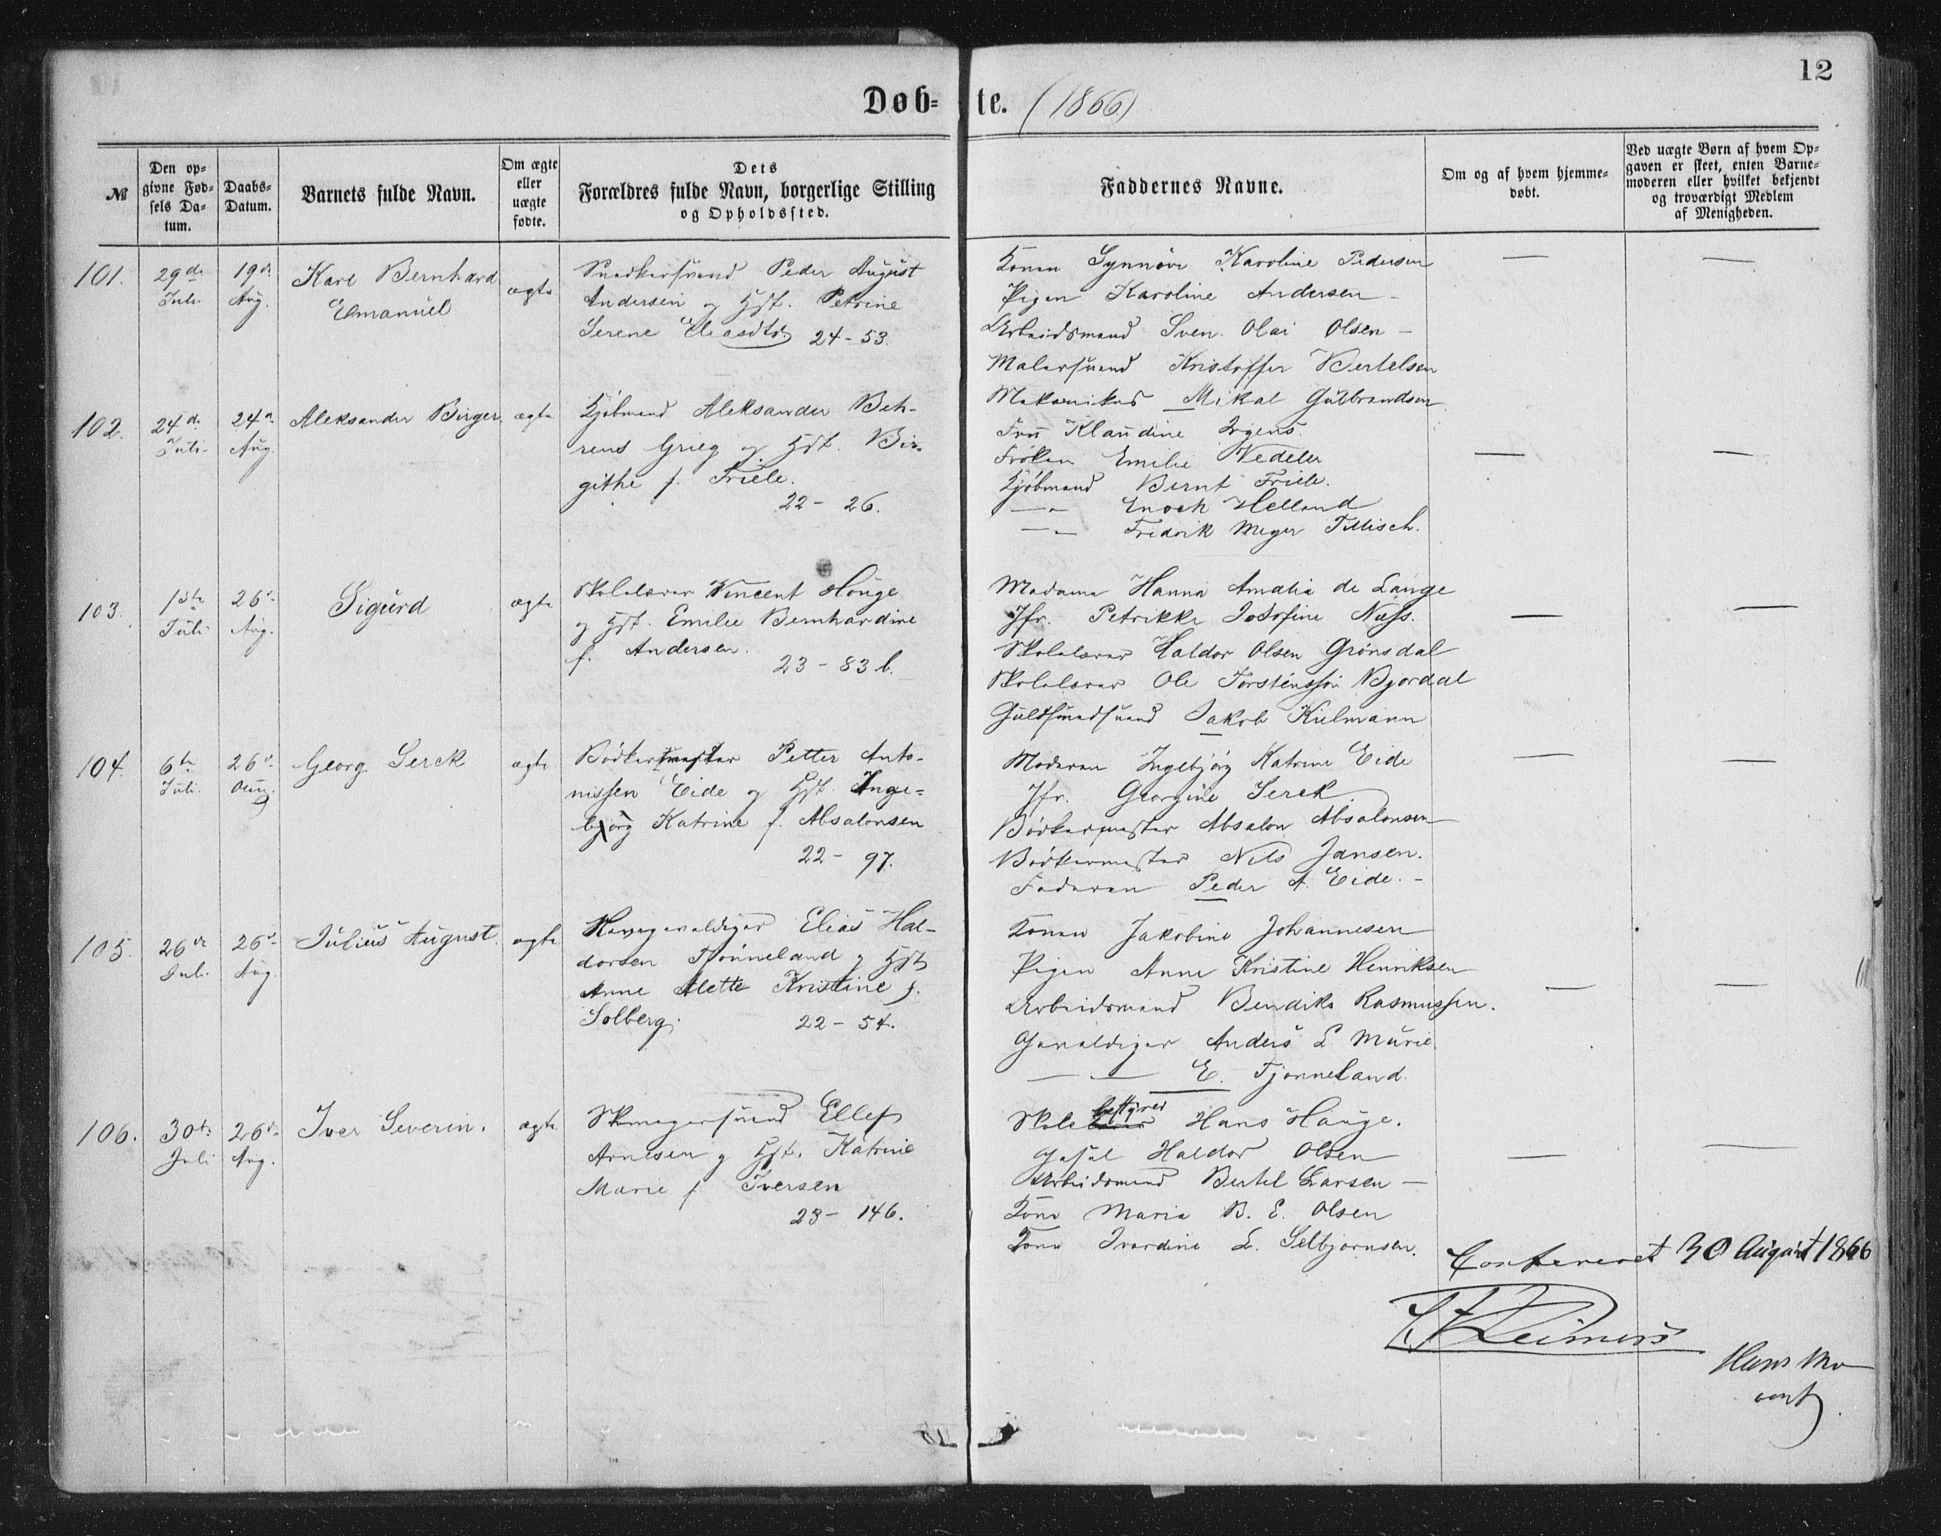 12
Døb= te. (1866)
№
Den op=
givne Fød=
sels Da=
tum.
Daabs=
Datum.
Barnets fulde Navn.
Om ægte
eller
uægte
fødte.
Dets
Forældres fulde Navn, borgerlige Stilling
og Opholdssted.
Faddernes Navne.
Om og af hvem hjemme=
døbt.
Ved uægte Børn af hvem Op=
gaven er skeet, enten Barne=
moderen eller hvilket bekjendt
og troværdigt Medlem
af Menigheden.
101.
29de
Juli
19de
Aug.
Karl Bernhard
Emanuel
ægte
Snedkersvend Peder August
Andersen og Hst. Petrine
Serene Eliasdtr.
24 - 53.
Konen Synnøve Karoline Pedersen
Pigen Karoline Andersen -
Arbeidsmand Sven Olai Olsen -
Malersvend Kristoffer Bertelsen
Mekanikus Mikal Gulbrandsen
102.
24de
Juli
24de
Aug.
Aleksander Birger
ægte
Kjøbmand Aleksander Beh-
rens Grieg og Hst. Bir-
githe f. Friele.
22 - 26.
Fru Klaudine Irgens.
Frøken Emilie Vedeler
Kjøbmand Bernt Friele.
— " — Enoch Helland
— " — Fredrik Meyer Tillisch.
103.
1ste
Juli
26de
Aug.
Sigurd
ægte
Skolelærer Vincent Houge
og Hst. Emilie Bernhardine
f. Andersen.
23 - 83 b.
Madame Hanna Amalia de Lange
Jfr. Petrikke Josefine Næss.
Skolelærer Haldor Olsen Grønsdal
Skolelærer Ole Torstensson Bjordal
Guldsmedsvend Jakob Kielmann
104.
6te
Juli
26de
Aug.
Georg Serck
ægte
Bødkermester Petter Anto-
nissen Eide og Hst. Inge=
bjørg Katrine f. Absalonsen
22 - 97.
Moderen Ingebjørg Katrine Eide
Jfr. Georgine Serck.
Bødkermester Absalon Absalonsen
Bødkermester Nils Jansen.
Faderen Peder A. Eide. -
105.
26de
Juli
26de
Aug.
Julius August.
ægte
Elias Hal-
dorsen Tjønneland og Hst.
Anne Alette Kristine f.
Solberg.
22 - 54.
Konen Jakobine Johannesen
Pigen Anne Kristine Henriksen
Arbeidsmand Bendiks Rasmussen.
Gevaldiger Anders L. Murie.
— " — E. Tjønneland.
106.
30te
Juli
26de
Aug.
Iver Severin.
ægte
Skomagersvend Ellef
Arnesen og Hst. Katrine
Marie f. Iversen
23 - 146.
Skolebestyrer Hans Hauge.
Haldor Olsen
Arbeidsmand Bertel Larsen -
Kone Maria B. E. Olsen
Kone Ivardine L. Selbjørnsen.
Confereret 30 August 1866
Reimers
Hans Mo